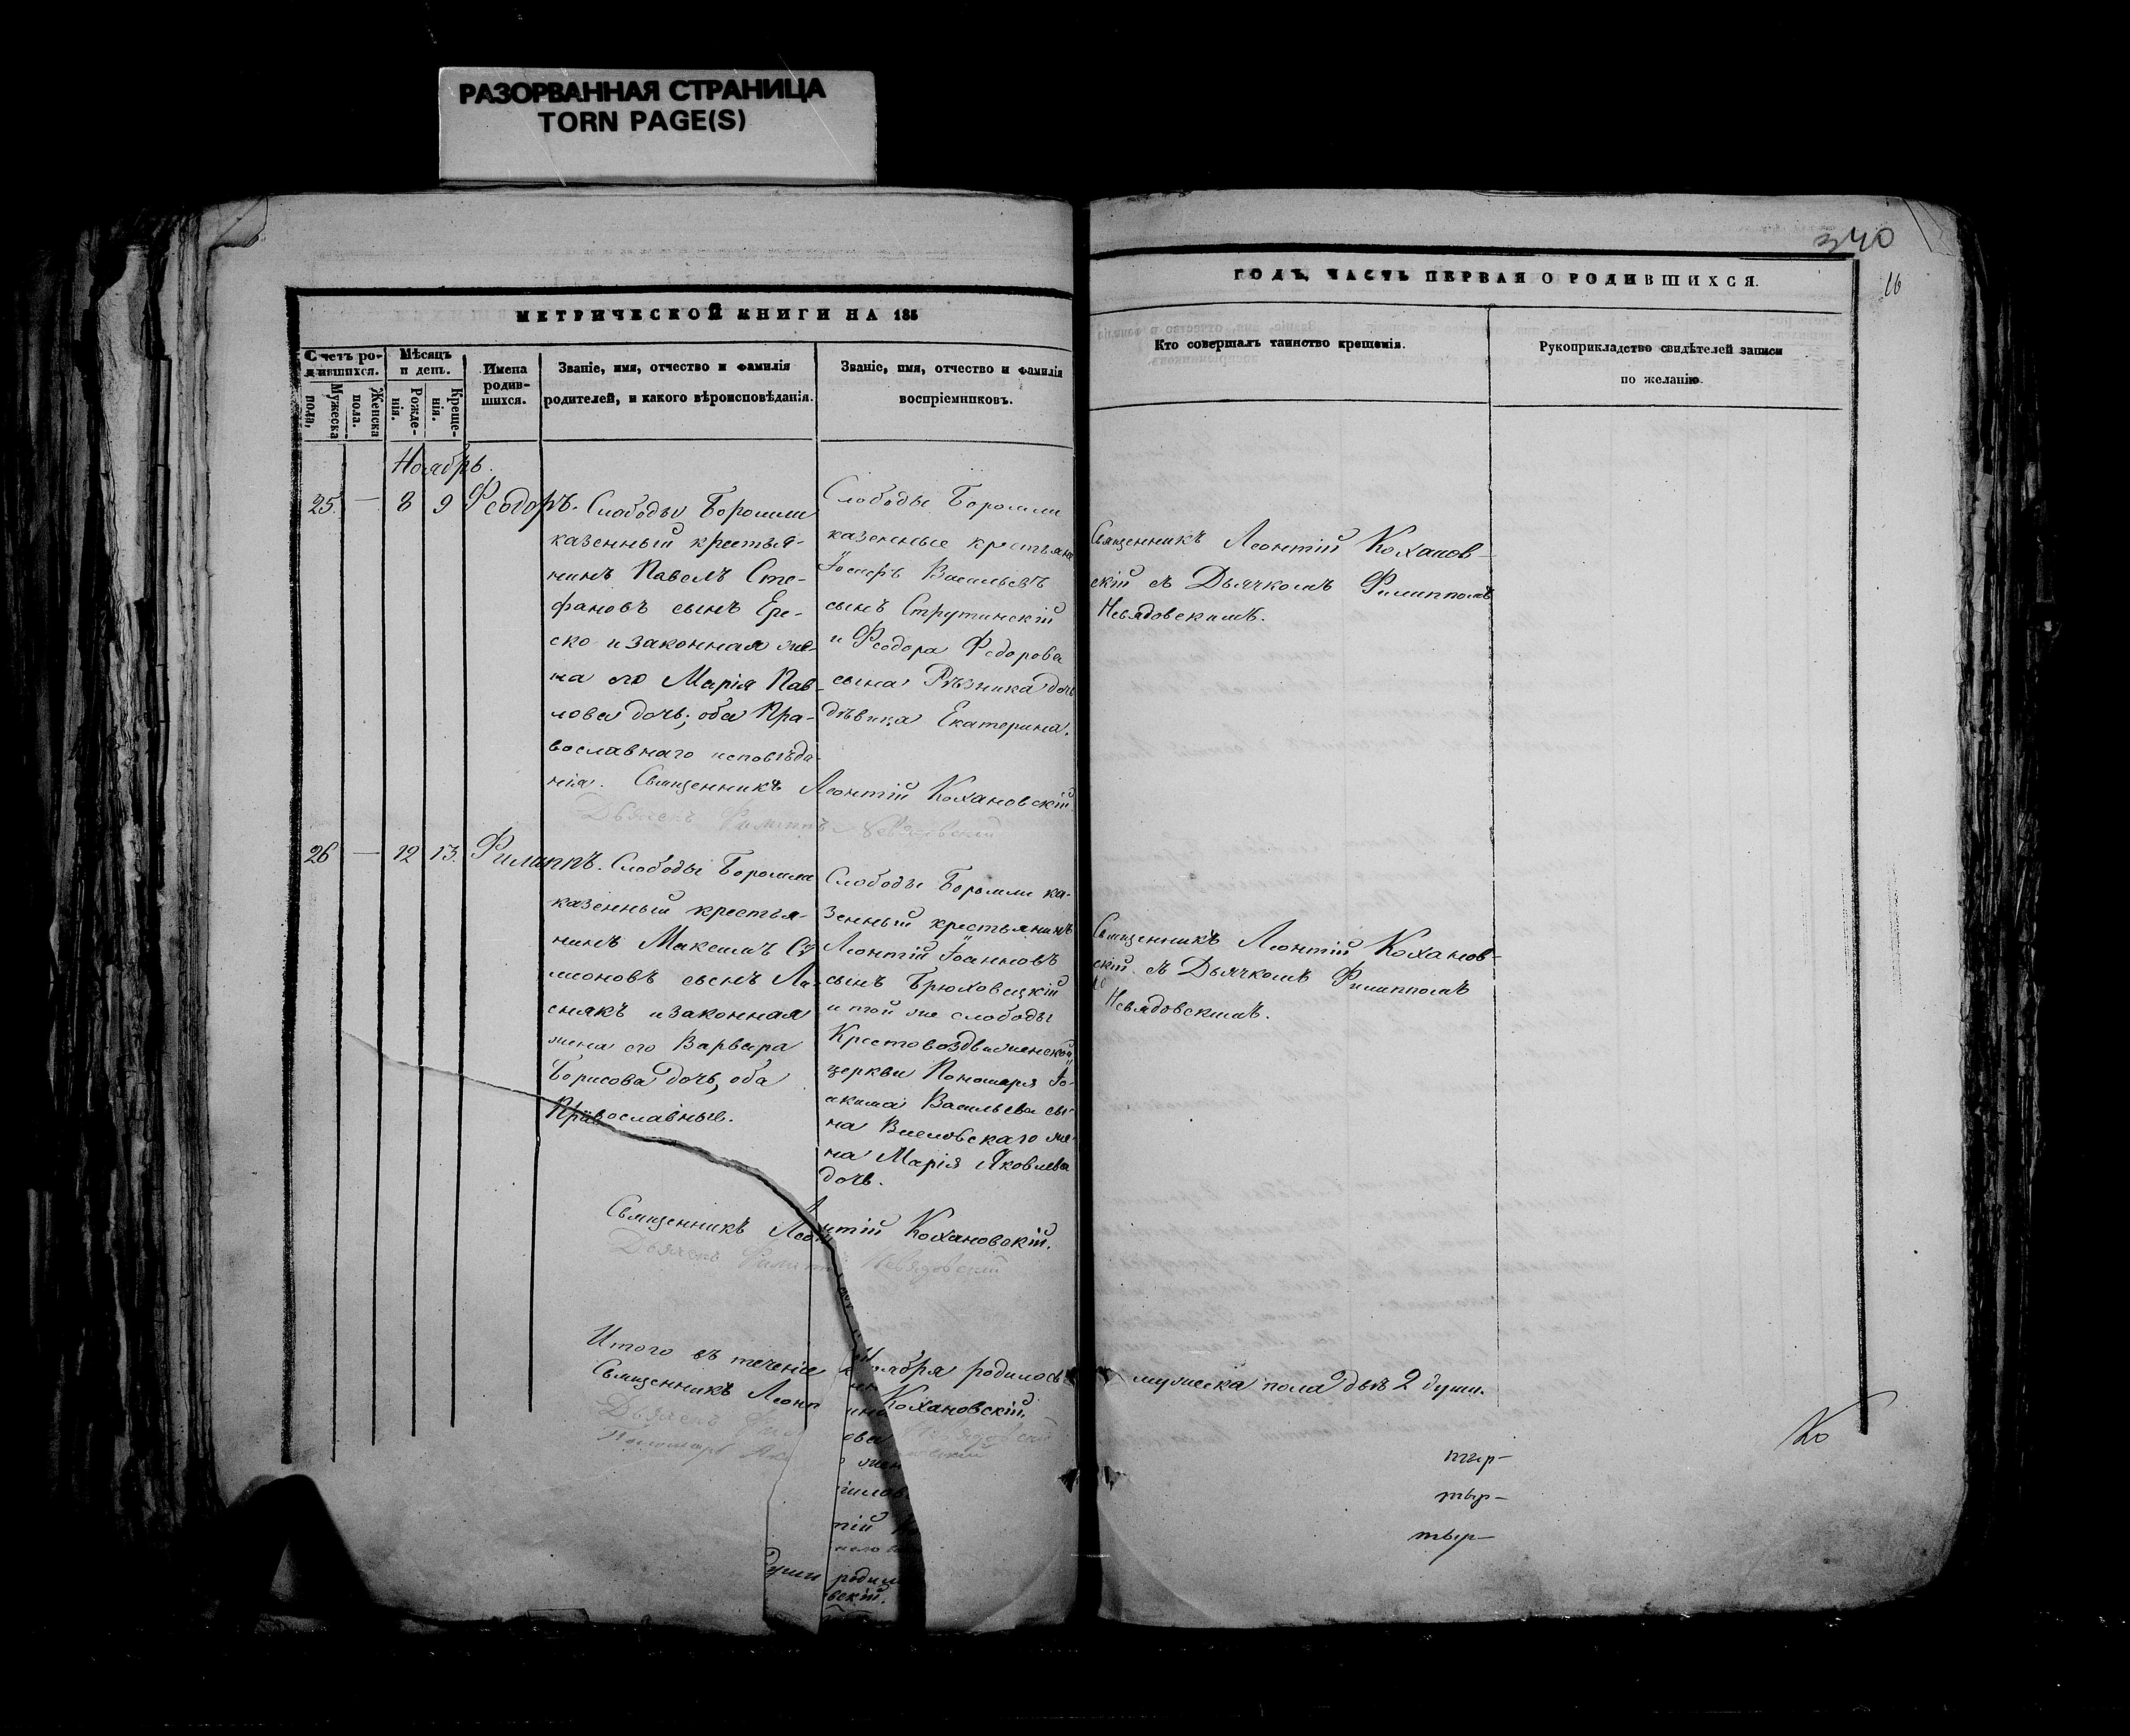 РАЗОРВАННАЯ СТРАНИЦА
TORN PAGE(S)
340
16
МЕТРИЧЕСКОЙ КНИГИ НА 185
ГОДЪ, ЧАСТЬ ПЕРВАЯ О РОДИВШИХСЯ.
Счетъ родившихся.
Мужеска пола.
Женска пола.
Мѣсяцъ и день.
Рожденія.
Крещенія.
Имена родившихся.
Званіе, имя, отчество и фамилія
родителей, и какого вѣроисповѣданія.
Званіе, имя, отчество и фамилія
воспріемниковъ.
Кто совершалъ таинство крещенія.
Рукоприкладство свидѣтелей записи
по желанію.
Ноябрь.
25. — 8 9 Ѳеодоръ.
Слободы Боромли
казенный крестья-
нинъ Павелъ Сте-
фановъ сынъ Ере-
ско и законная же-
на его Марія Пав-
лова дочь; оба Пра-
вославнаго исповѣда-
нія.
Слободы Боромли
казенные крестьяне
Іосифъ Васильевъ
сынъ Струтинскій
и Ѳеодора Ѳедорова
сына Рѣзника дочь
дѣвица Екатерина.
Священникъ Леонтій Кохановскій
Дьячекъ Филиппъ Невядовскій
Священникъ Леонтій Коханов-
скій съ Дьячкомъ Филиппомъ
Невядовскимъ.
26 — 12 13. Филиппъ.
Слободы Боромли
казенный крестья-
нинъ Максимъ Си-
меоновъ сынъ Ли-
снякъ и законная
жена его Варвара
Борисова дочь, оба
Православные.
Слободы Боромли ка-
зенный крестьянинъ
Леонтій Іоанновъ
сынъ Брюховецкій
и той же слободы
Крестовоздвиженской
церкви Пономаря Іо-
акима Васильева сы-
на
же-
на Марія Яковлева
дочь.
Священникъ Леонтій Кохановскій.
Дьячекъ Филиппъ Невядовскій
Священникъ Леонтій Коханов-
скій съ Дьячкомъ Филиппомъ
Невядовскимъ.
Итого въ теченіе Ноября родилось мужеска пола двѣ 2 души.
Священникъ Леонтій Кохановскій.
Дьячекъ Невядовскій
Пономарь
души родил
вскій.
тыр-
тыр-
тыр-
Ко